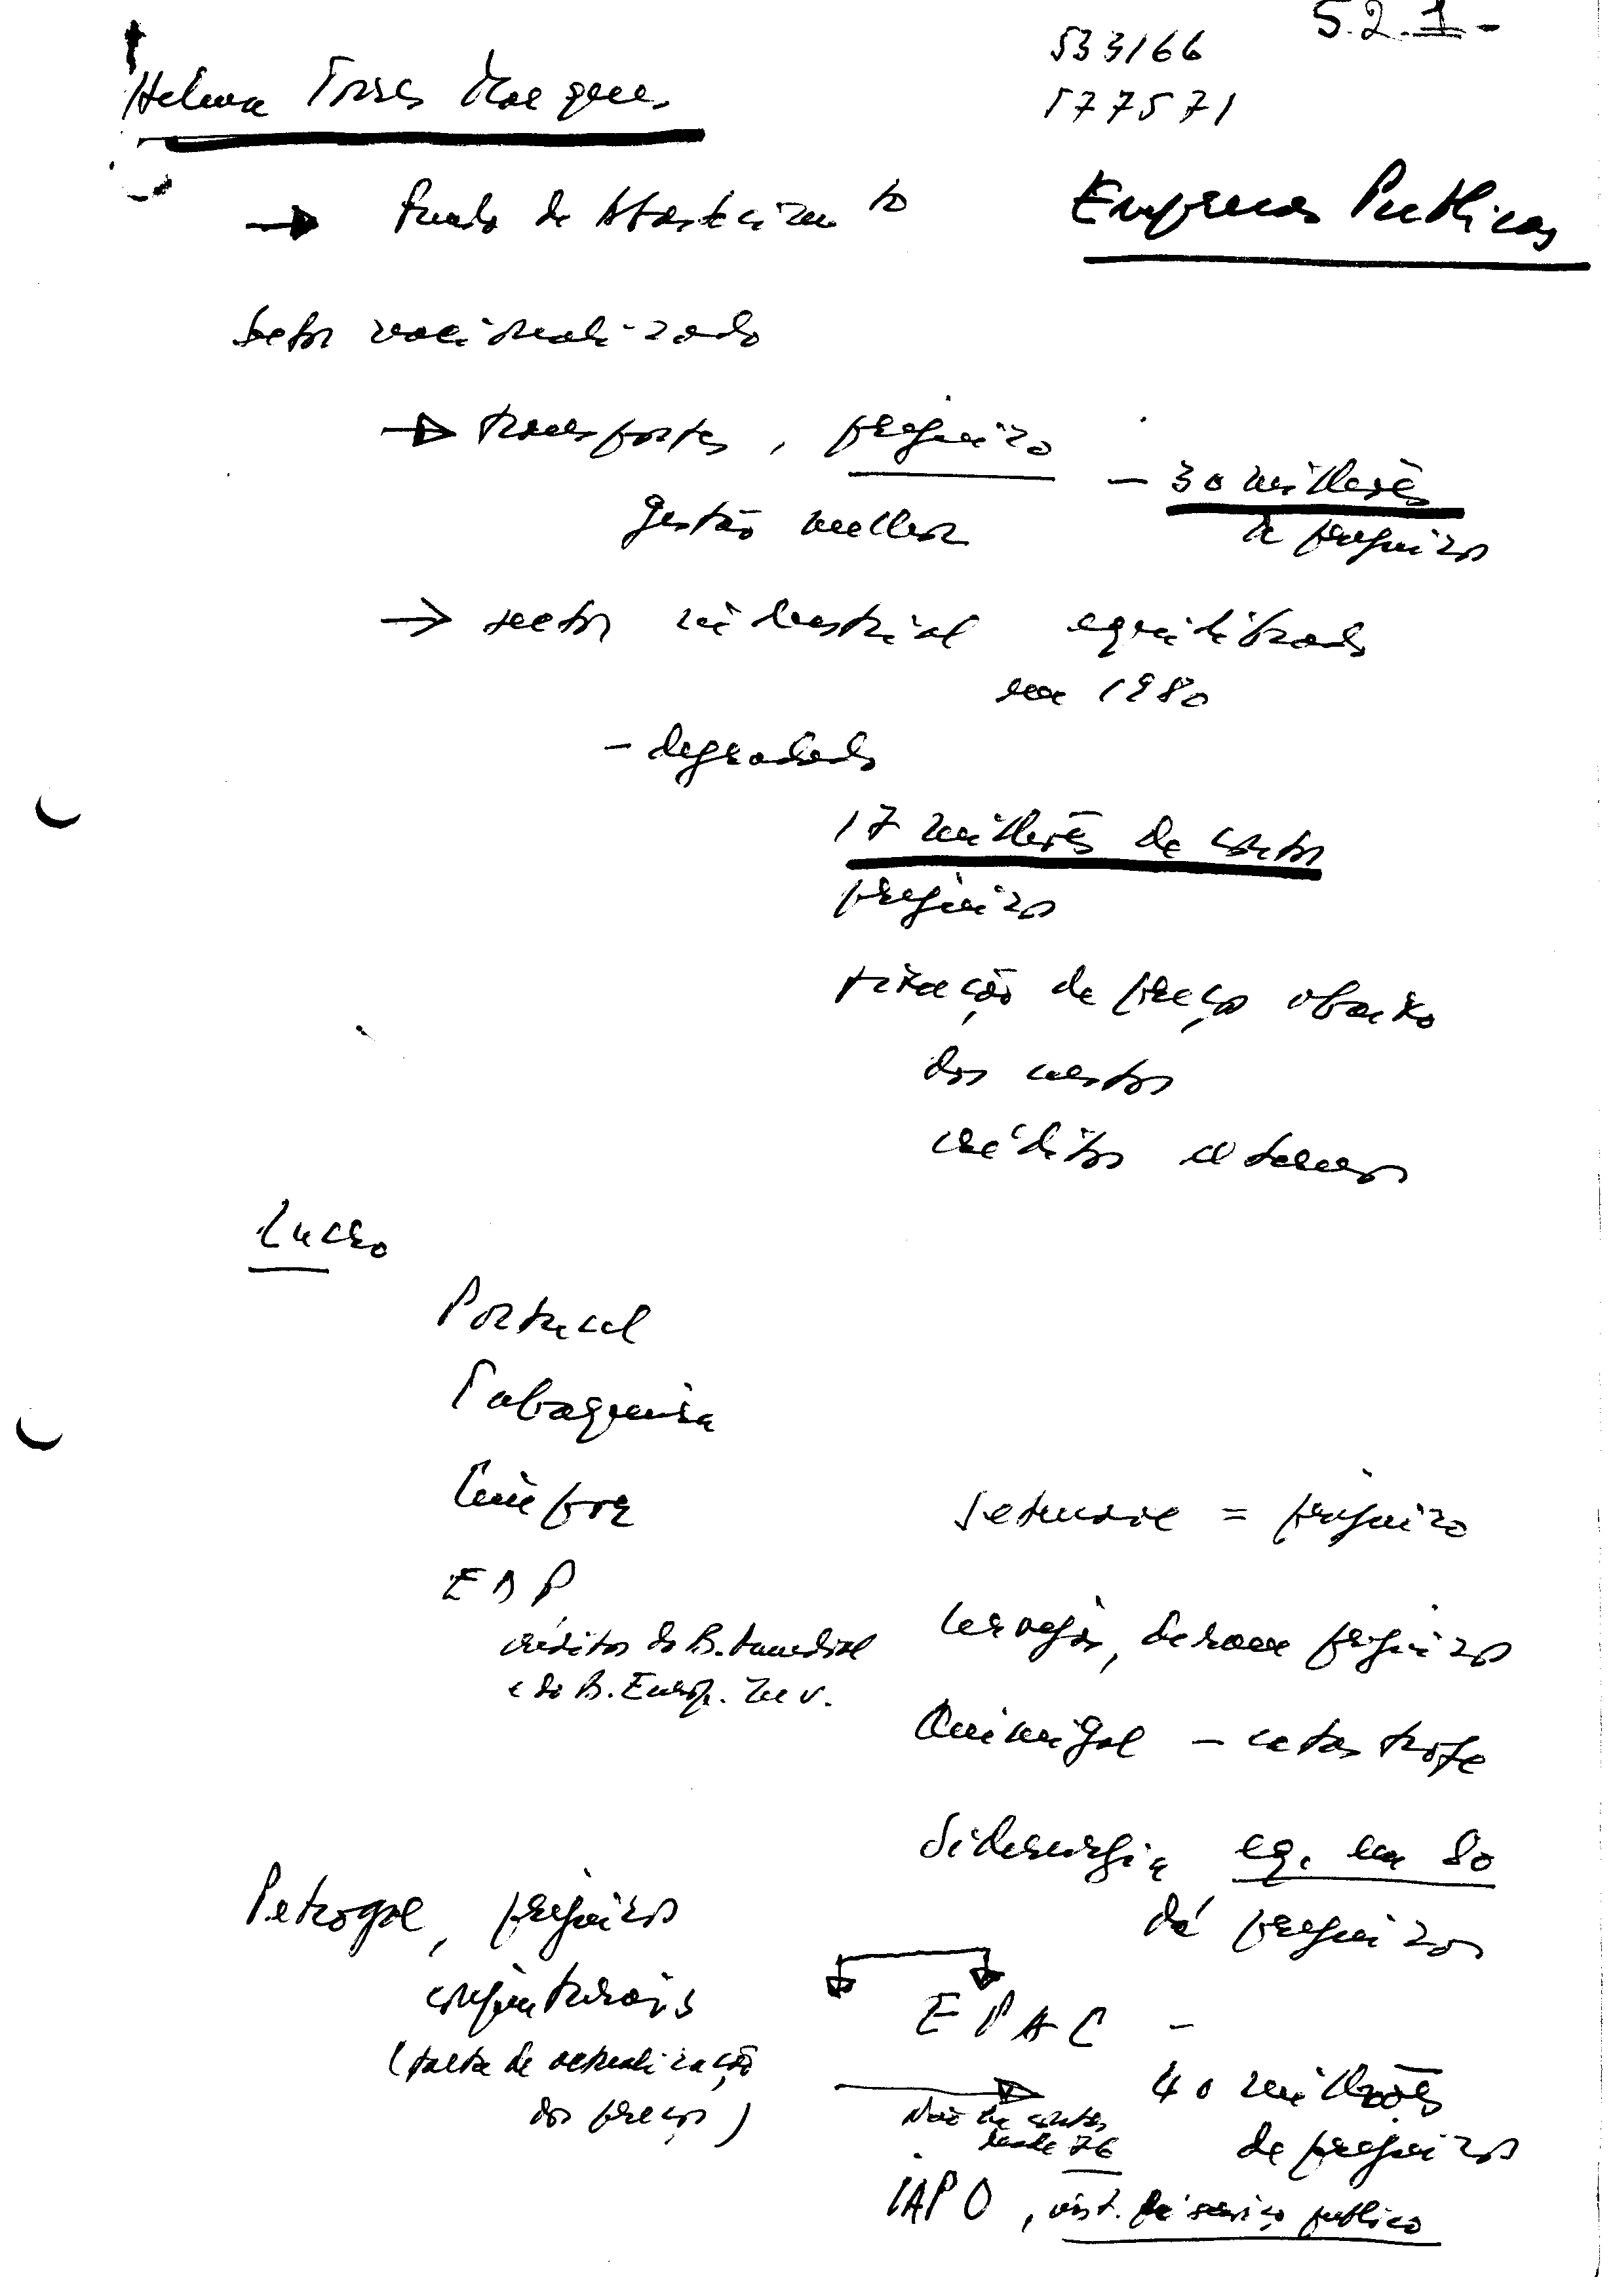 5.2.1-
533166
577571
Helena Torres Marques
Empresas Publicas
→ Fundo de Abastecimento
Setor nacionalizado
→ transportes, prejuizo
— 30 milhões
de prejuizos
gestão melhor
→ sector industrial equilibrado
em 1980
- degradado
17 milhões de contos
prejuizos
fixação de preços abaixo
dos custos
créditos externos
Lucro
Portucel
Tabaqueira
Cimpor
EDP
créditos do B. Mundial
e do B. Europ. Inv.
Setenave = prejuizo
Cervejas, deram prejuizos
Quimigal - catastrofe
Siderurgia eq. em 80
dá prejuizos
Petrogal, prejuizos
conjunturais
(falta de actualização
dos preços)
EPAC -
40 milhões
de prejuizos
Não há contas
desde 76
IAPO, inst. de serviço publico